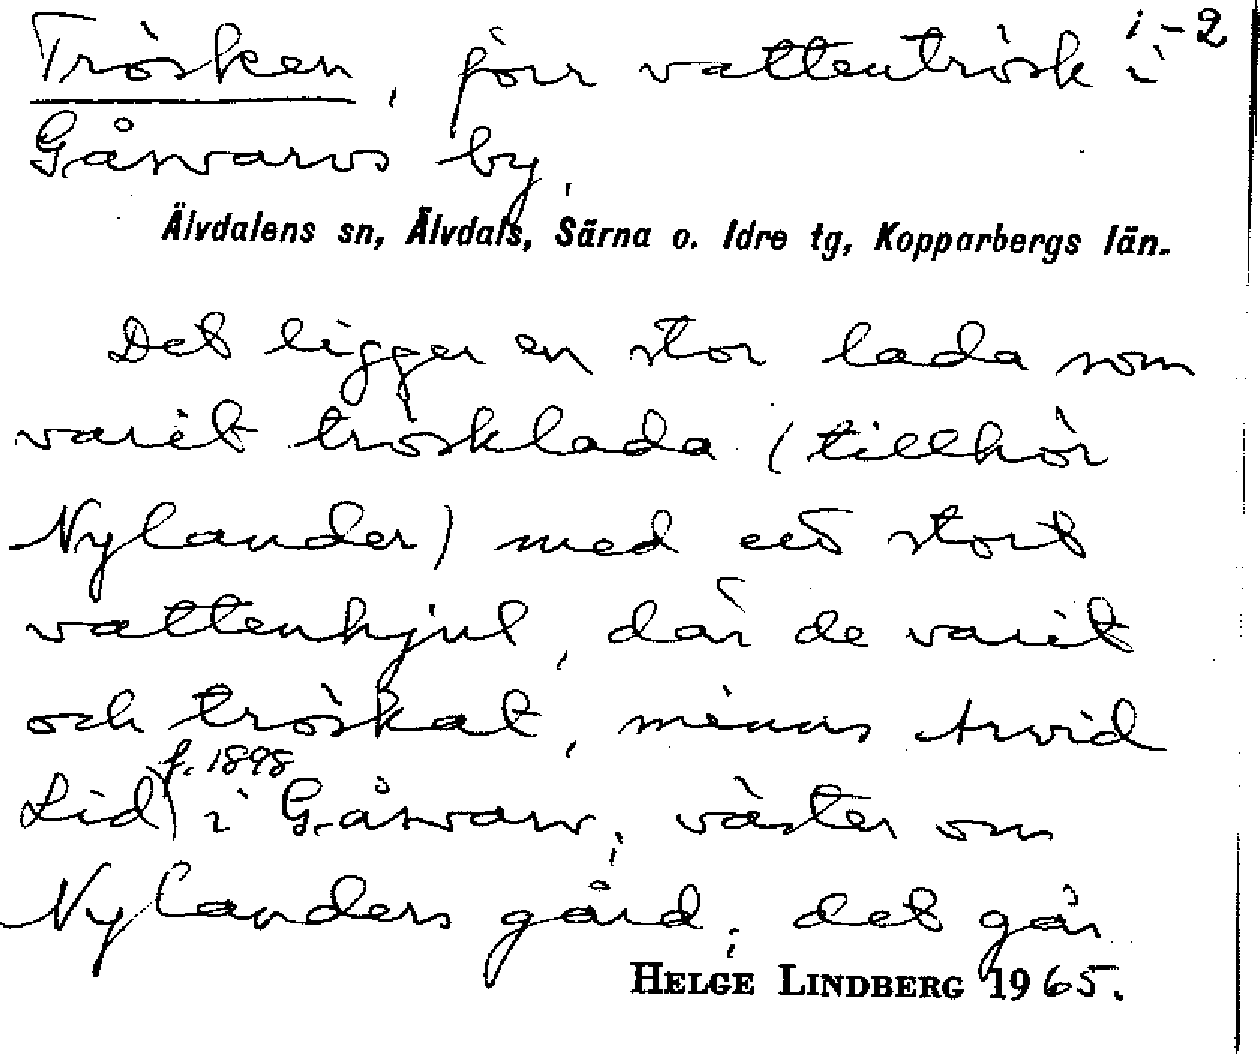 1-2
Trösken, förr vattentrösk i
Gåsvarvs by,
Älvdalens sn, Älvdals, Särna o. Idre tg, Kopparbergs län.
Det ligger en stor lada som
varit trösklada (tillhör
Nylander) med ett stort
vattenhjul, där de varit
och tröskat, minns Arvid
f. 1898
Lid i Gåsvarv, väster om
Nylanders gård, det går
HELGE LINDBERG 1965.